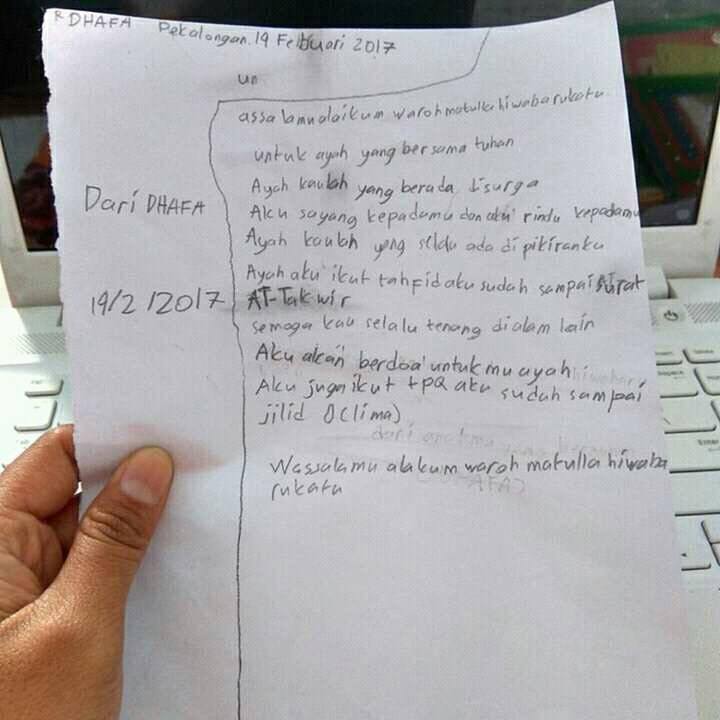 R DHAFA Pekalongan.19 Februari 2017
un
assalamualaikum warohmatullahiwabarukatu
untuk ayah yang bersama tuhan
Ayah kaulah yang berada disurga
Aku sayang kepadamu dan aku rindu kepadamu
Ayah kaulah yang selalu ada dipikiranku
Ayah aku ikut tahfid aku sudah sampai surat
AT-Takwir
semoga kau selalu tenang dialam lain
Aku akan berdoa untukmu ayah
Aku juga ikut tpq aku sudah sampai
jilid (lima)
Wassalamu alakum waroh matulla hiwaba
rukatu
Dari DHAFA
19/2/2017